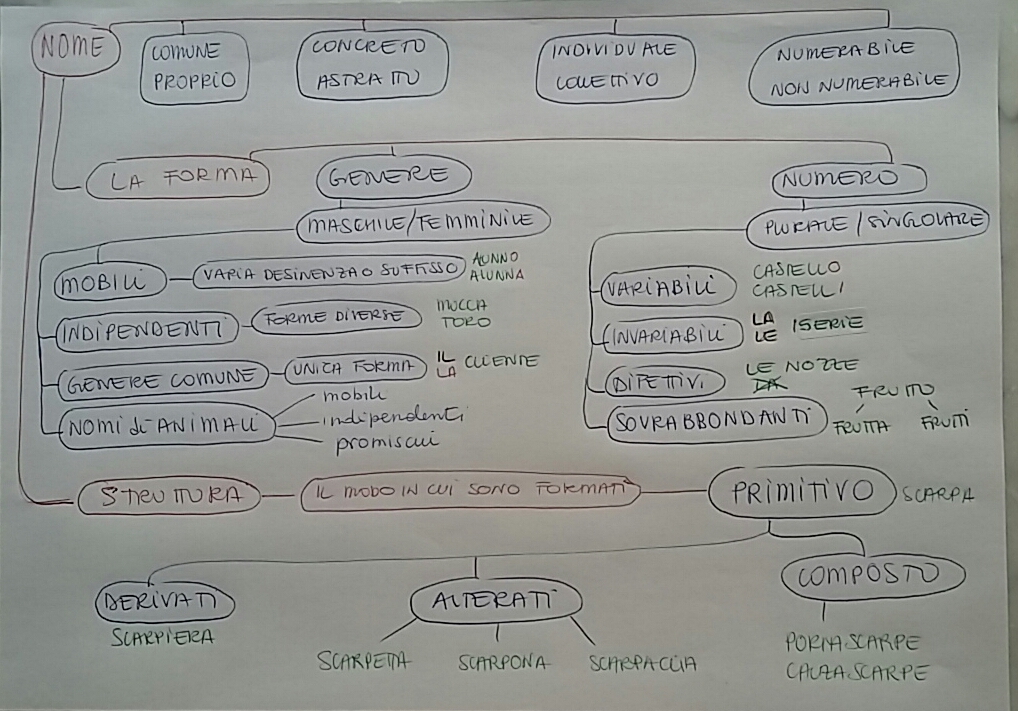 NOME
COMUNE
PROPRIO
CONCRETO
ASTRATTO
INDIVIDUALE
COLETTIVO
NUMERABILE
NON NUMERABILE
LA FORMA
GENERE
NUMERO
MASCHILE/FEMMINILE
PLURALE/SINGOLARE
MOBILI
VARIA DESINENZA O SUFFISSO
ALUNNO
ALUNNA
VARIABILI
CASTELLO
CASTELLI
INDIPENDENTI
FORME DIVERSE
MUCCA
TORO
INVARIABILI
LA
LE
SERIE
GENERE COMUNE
UNICA FORMA
IL
LA
CLIENTE
DIFETTIVI
LE NOZZE
NOMI di ANIMALI
mobili
indipendenti
promiscui
SOVRABBONDANTI
FRUTTO
FRUTTA
FRUTTI
STRUTTURA
IL MODO IN CUI SONO FORMATI
PRIMITIVO
SCARPA
DERIVATI
SCARPIERA
ALTERATI
SCARPETTA
SCARPONA
SCARPACCIA
COMPOSTO
PORTASCARPE
CALZASCARPE